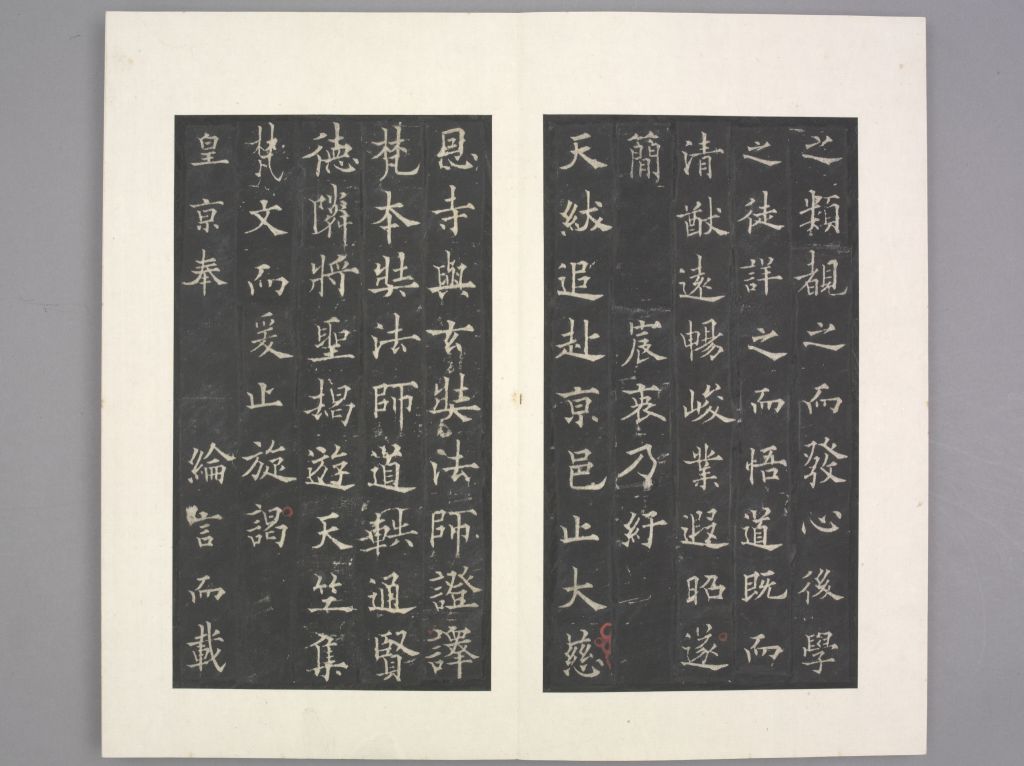 之類覩之而發心後學
之徒詳之而悟道既而
清猷遠暢峻業遐昭遂
簡 宸衷乃紆
天紱追赴亰邑止大慈
恩寺與玄奘法師證譯
梵本奘法師道軼通賢
德隣將聖揭遊天竺集
梵文而爰止旋謁
皇亰奉 綸言而載